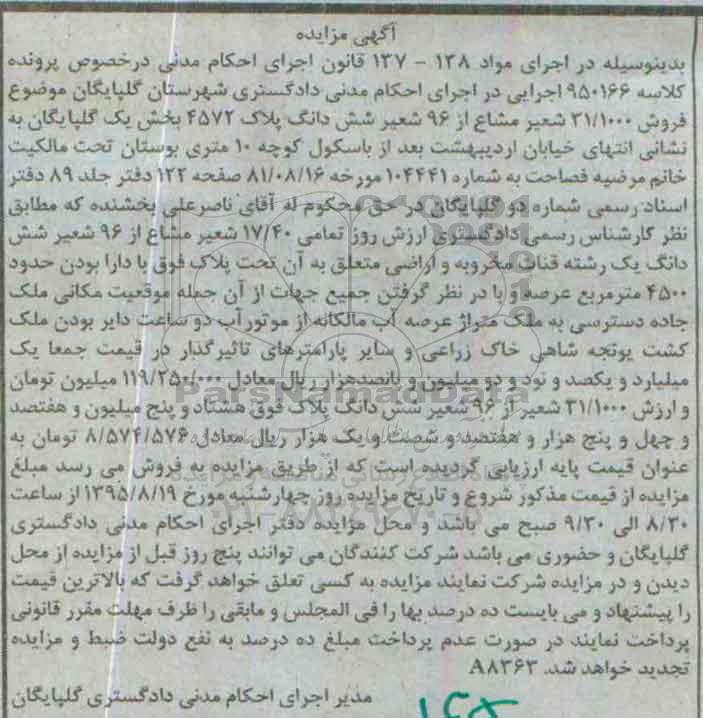 آگهی مزایده
بدینوسیله در اجرای مواد ۱۳۸ - ۱۳۷ قانون اجرای احکام مدنی درخصوص پرونده
کلاسه ۹۵۰۱۶۶ اجرایی در اجرای احکام مدنی دادگستری شهرستان گلپایگان موضوع
فروش ۳۱/۱۰۰۰ شعیر مشاع از ۹۶ شعیر شش دانگ پلاک ۴۵۷۲ بخش یک گلپایگان به
نشانی انتهای خیابان اردیبهشت بعد از باسکول کوچه ۱۰ متری بوستان تحت مالکیت
خانم مرضیه فصاحت به شماره ۱۰۴۴۴۱ مورخه ۸۱/۰۸/۱۶ صفحه ۱۲۲ دفتر جلد ۸۹ دفتر
اسناد رسمی شماره دو گلپایگان در حق محکوم له آقای ناصرعلی بخشنده که مطابق
نظر کارشناس رسمی دادگستری ارزش روز تمامی ۱۷/۴۰ شعیر مشاع از ۹۶ شعیر شش
دانگ یک رشته قنات مخروبه و اراضی متعلق به آن تحت پلاک فوق با دارا بودن حدود
۴۵۰۰ مترمربع عرصه و با در نظر گرفتن جمیع جهات از آن جمله موقعیت مکانی ملک
جاده دسترسی به ملک متراژ عرصه آب مالکانه از موتور آب دو ساعت دایر بودن ملک
کشت یونجه شاهی خاک زراعی و سایر پارامترهای تاثیرگذار در قیمت جمعا یک
میلیارد و یکصد و نود و دو میلیون و پانصدهزار ریال معادل ۱۱۹/۲۵۰/۰۰۰ میلیون تومان
و ارزش ۳۱/۱۰۰۰ شعیر از ۹۶ شعیر شش دانگ پلاک فوق هشتاد و پنج میلیون و هفتصد
و چهل و پنج هزار و هفتصد و شصت و یک هزار ریال معادل ۸/۵۷۴/۵۷۶ تومان به
عنوان قیمت پایه ارزیابی گردیده است که از طریق مزایده به فروش می رسد مبلغ
مزایده از قیمت مذکور شروع و تاریخ مزایده روز چهارشنبه مورخ ۱۳۹۵/۸/۱۹ از ساعت
۸/۳۰ الی ۹/۳۰ صبح می باشد و محل مزایده دفتر اجرای احکام مدنی دادگستری
گلپایگان و حضوری می باشد شرکت کنندگان می توانند پنج روز قبل از مزایده از محل
دیدن و در مزایده شرکت نمایند مزایده به کسی تعلق خواهد گرفت که بالاترین قیمت
را پیشنهاد و می بایست ده درصد بها را فی المجلس و مابقی را ظرف مهلت مقرر قانونی
پرداخت نمایند در صورت عدم پرداخت مبلغ ده درصد به نفع دولت ضبط و مزایده
تجدید خواهد شد. A۸۳۶۳
مدیر اجرای احکام مدنی دادگستری گلپایگان
ParsNamadData